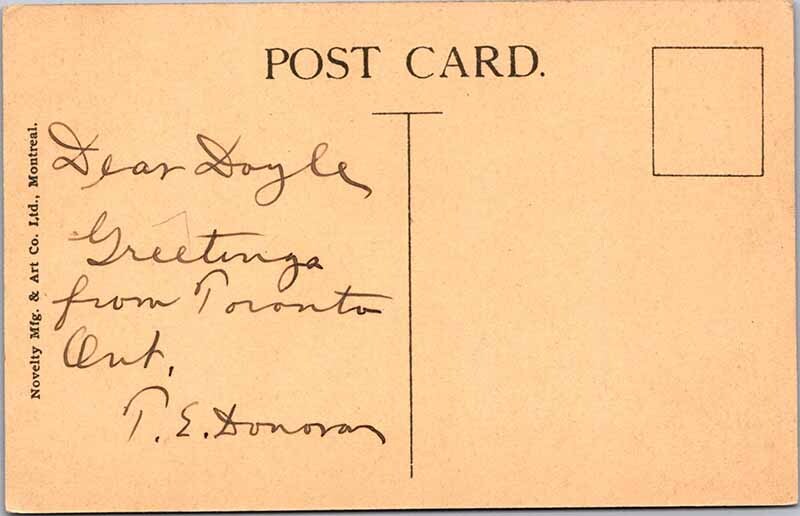 POST CARD.
Novelty Mfg. & Art Co. Ltd., Montreal.
Dear Doyle,
Greetings
from Toronto
Ont.
T. E. Donovan